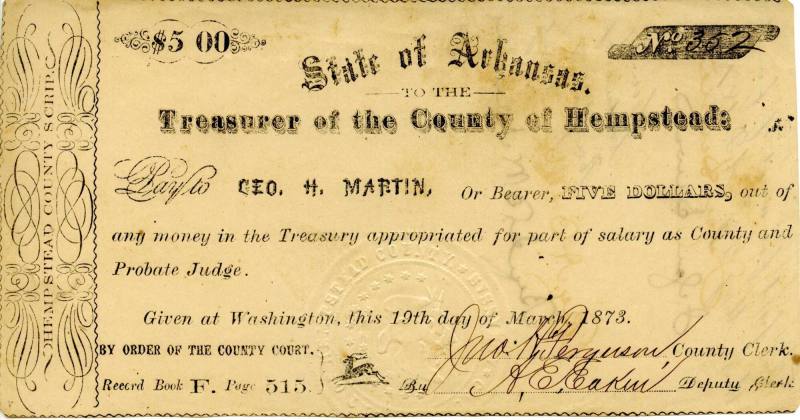 $5 00
No. 352
State of Arkansas.
TO THE
Treasurer of the County of Hempstead:
Pay to GEO. H. MARTIN, Or Bearer, FIVE DOLLARS, out of
any money in the Treasury appropriated for part of salary as County and
Probate Judge.
Given at Washington, this 19th day of March, 1873.
BY ORDER OF THE COUNTY COURT.
Jno. H. Ferguson, County Clerk.
Record Book F. Page 515.
By A. E. Eakin, Deputy Clerk
HEMPSTEAD COUNTY SCRIP.